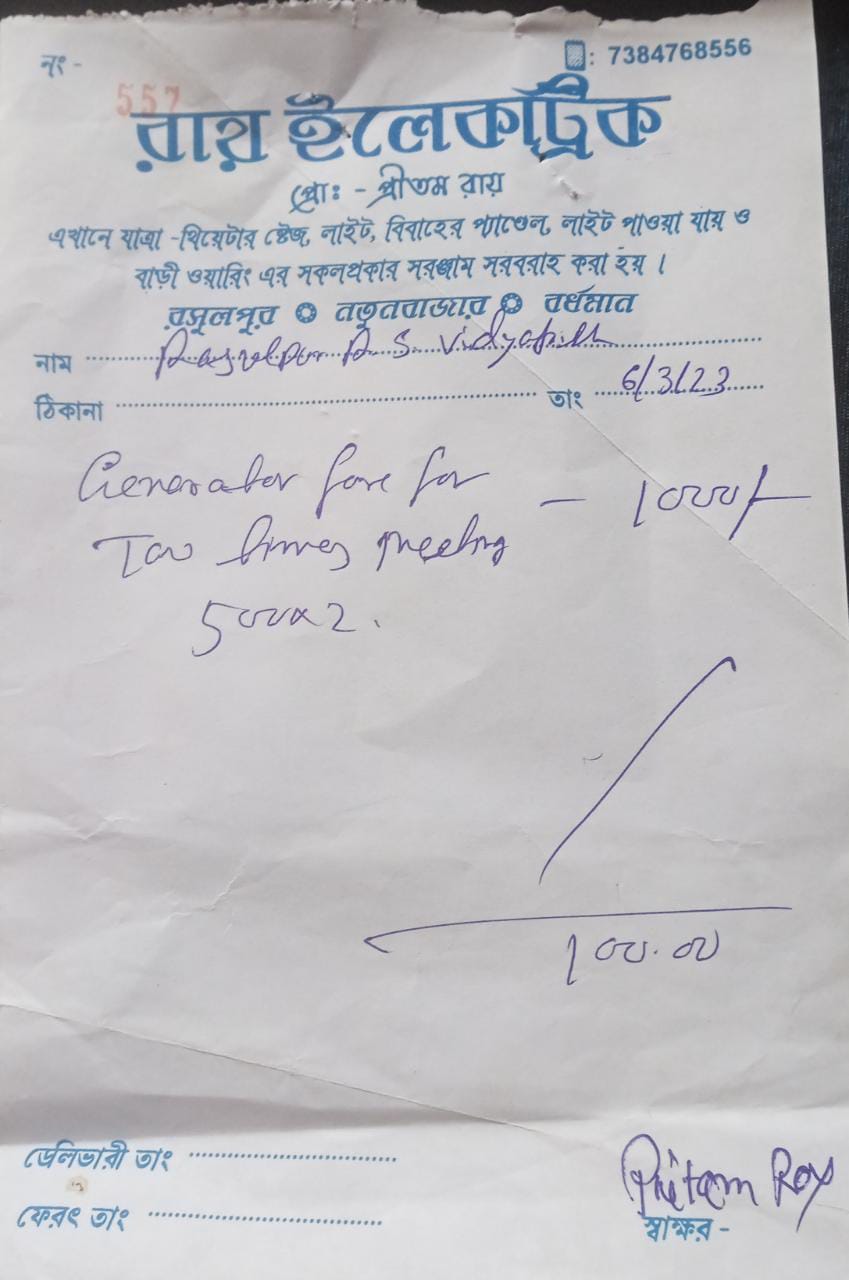 নং -
557
: 7384768556
রায় ইলেকট্রিক
প্রোঃ - প্রীতম রায়
এখানে যাত্রা -থিয়েটার ষ্টেজ, লাইট, বিবাহের প্যাণ্ডেল, লাইট পাওয়া যায় ও
বাড়ী ওয়ারিং এর সকলপ্রকার সরঞ্জাম সরবরাহ করা হয় ।
রসুলপুর ❂ নতুনবাজার ❂ বর্ধমান
নাম Rasulpur B. S. Vidyapith
ঠিকানা তাং 6/3/23
Generator fare for — 1000/-
Two times meeting
500x2.
100.00
ডেলিভারী তাং
ফেরৎ তাং
Pritam Roy
স্বাক্ষর -